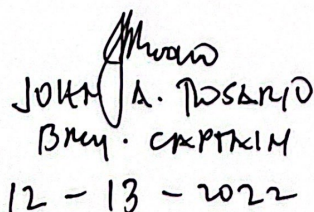 JOHN A. ROSARIO
BRGY. CAPTAIN
12 - 13 - 2022